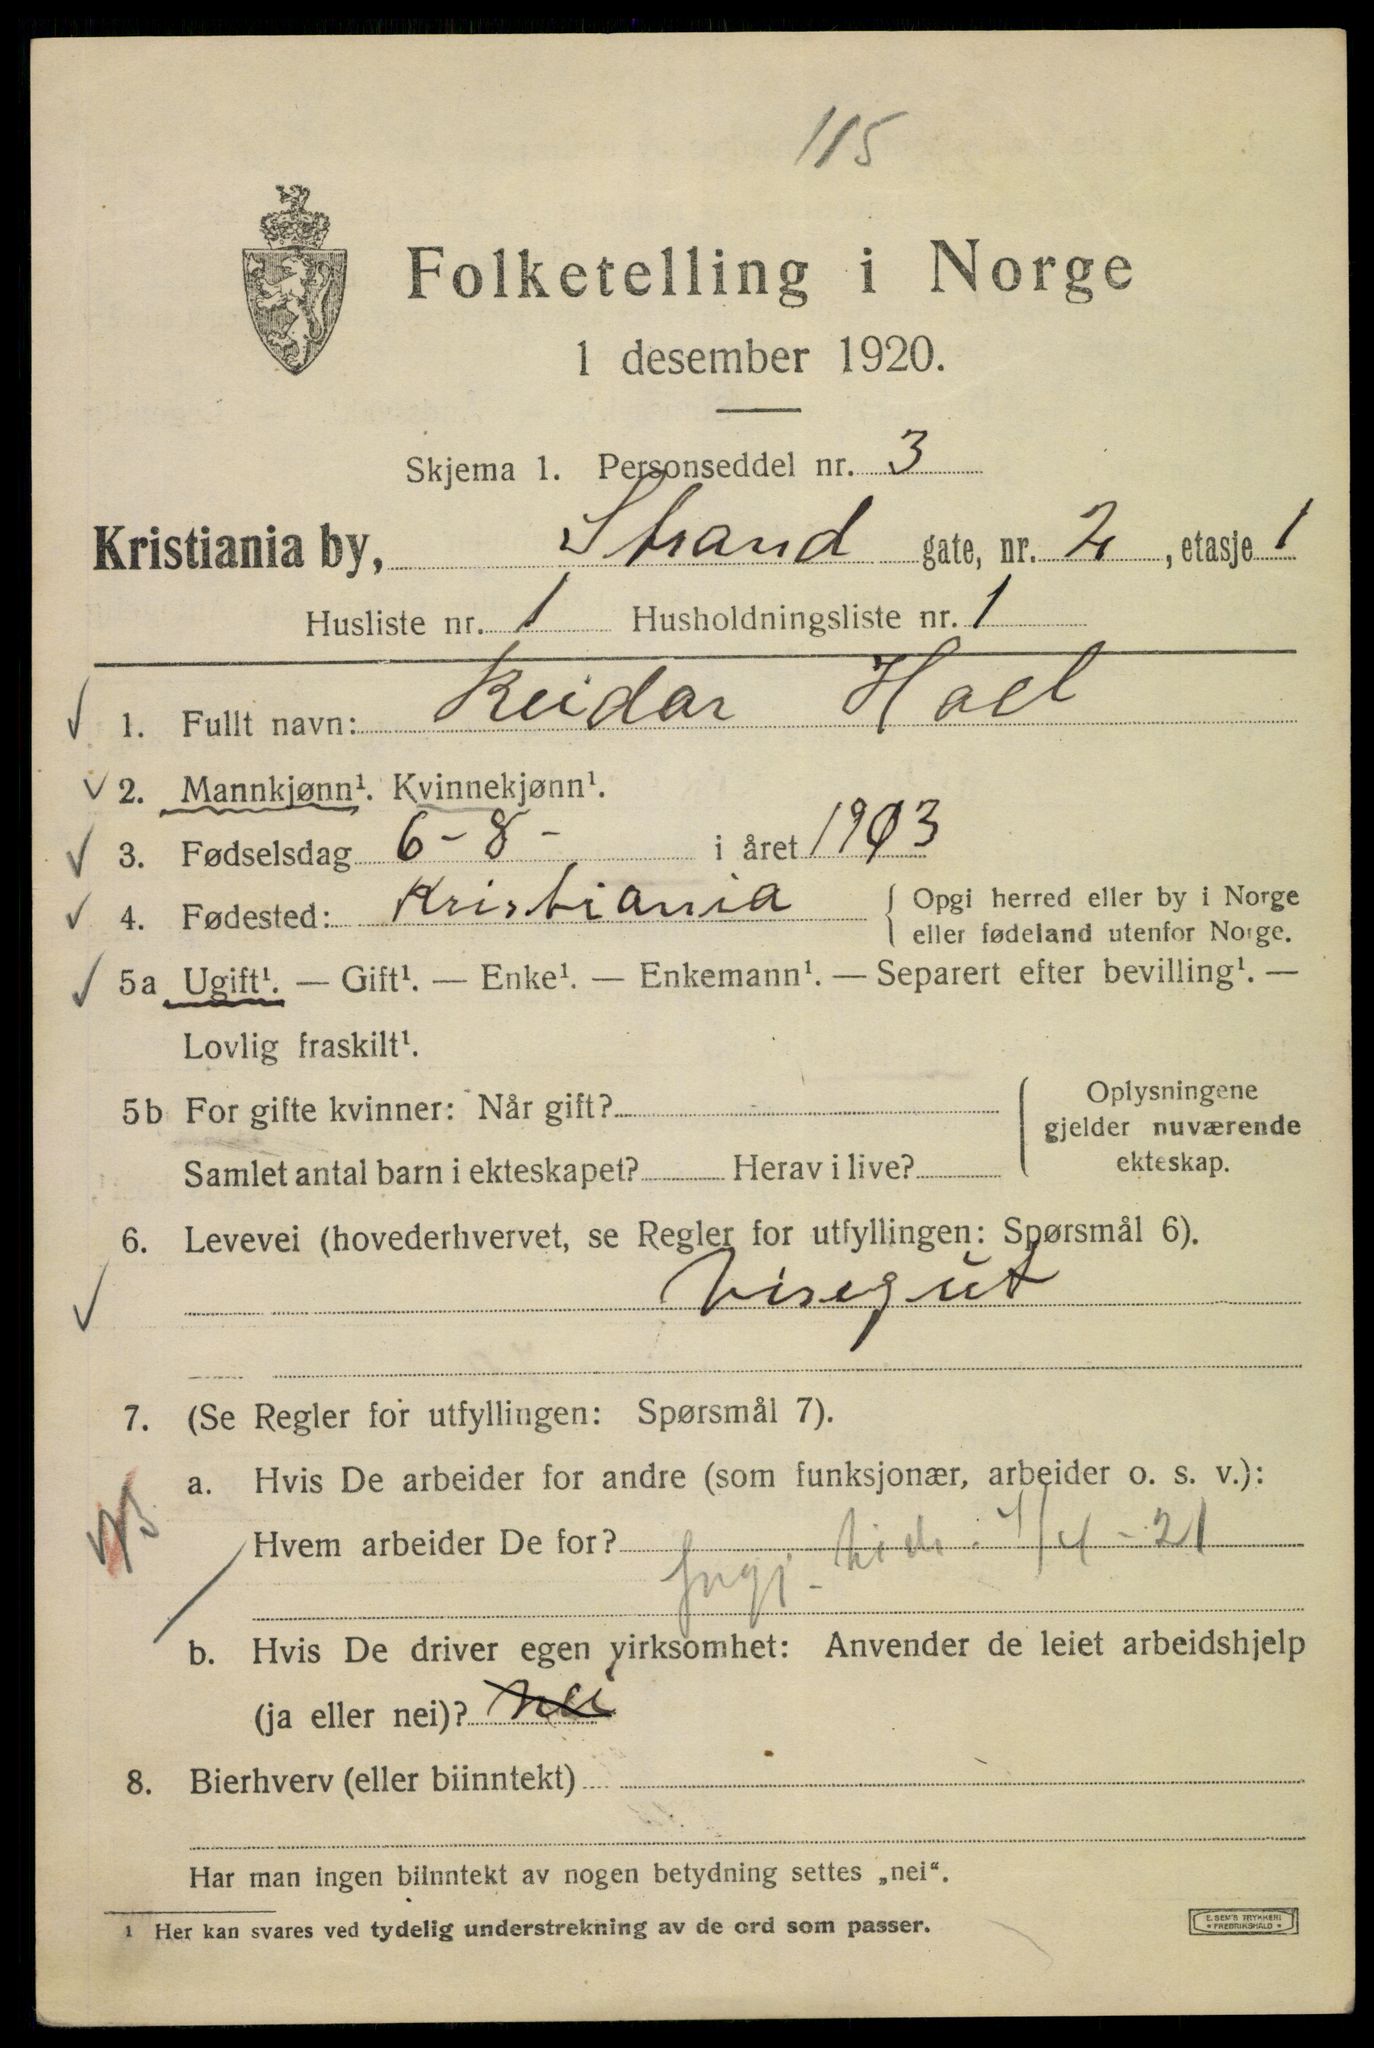 115
Folketelling i Norge
1 desember 1920.
Skjema 1. Personseddel nr. 3
Kristiania by, Strand gate, nr. 2, etasje 1
Husliste nr. 1 Husholdningsliste nr. 1
1. Fullt navn: Reidar Hoel
2. Mannkjønn¹. Kvinnekjønn¹.
3. Fødselsdag 6-8- i året 1903
4. Fødested: Kristiania { Opgi herred eller by i Norge
eller fødeland utenfor Norge.
5a Ugift¹. — Gift¹. — Enke¹. — Enkemann¹. — Separert efter bevilling¹. —
Lovlig fraskilt¹.
5b For gifte kvinner: Når gift? { Oplysningene
gjelder nuværende
Samlet antal barn i ekteskapet? Herav i live? ekteskap.
6. Levevei (hovederhvervet, se Regler for utfyllingen: Spørsmål 6).
Visegut
7. (Se Regler for utfyllingen: Spørsmål 7).
a. Hvis De arbeider for andre (som funksjonær, arbeider o. s. v.):
Hvem arbeider De for? 4-21
b. Hvis De driver egen virksomhet: Anvender de leiet arbeidshjelp
(ja eller nei)? nei
8. Bierhverv (eller biinntekt)
Har man ingen biinntekt av nogen betydning settes „nei“.
¹ Her kan svares ved tydelig understrekning av de ord som passer.
E. SEM'S TRYKKERI
FREDRIKSHALD